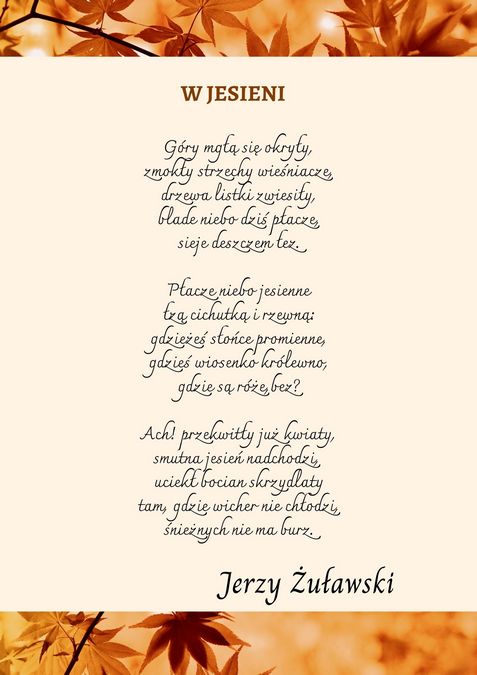 W JESIENI
Góry mgłą się okryły,
zmokły strzechy wieśniacze,
drzewa listki zwiesiły,
blade niebo dziś płacze,
sieje deszczem łez.
Płacze niebo jesienne
łzą cichutką i rzewną:
gdzieżeś słońce promienne,
gdzieś wiosenko królewno,
gdzie są róże, bez?
Ach! przekwitły już kwiaty,
smutna jesień nadchodzi,
uciekł bocian skrzydlaty
tam, gdzie wicher nie chłodzi,
śnieżnych nie ma burz.
Jerzy Żuławski